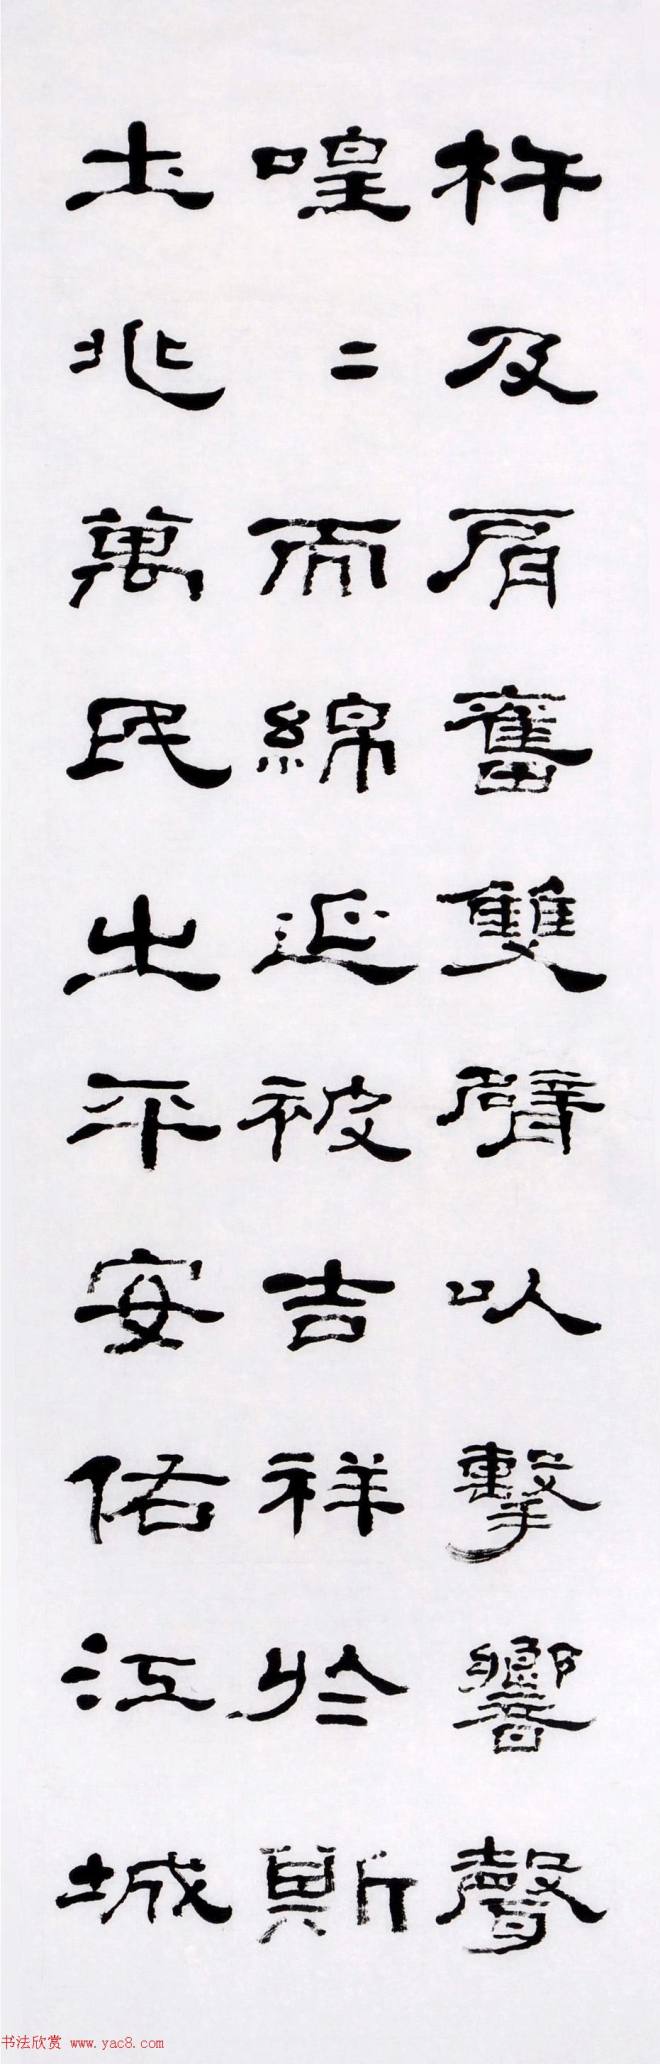 杵及肩奮雙臂以擊響聲
喤二而綿延被吉祥於斯
土兆萬民之平安佑江城
书法欣赏 www.yac8.com